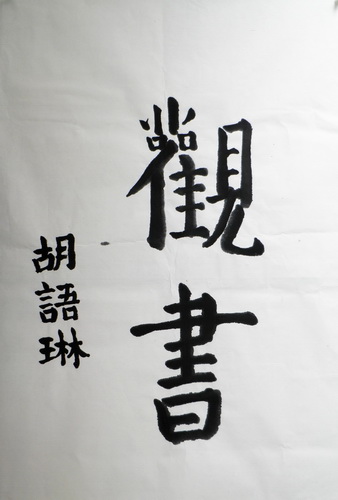 觀書
胡語琳